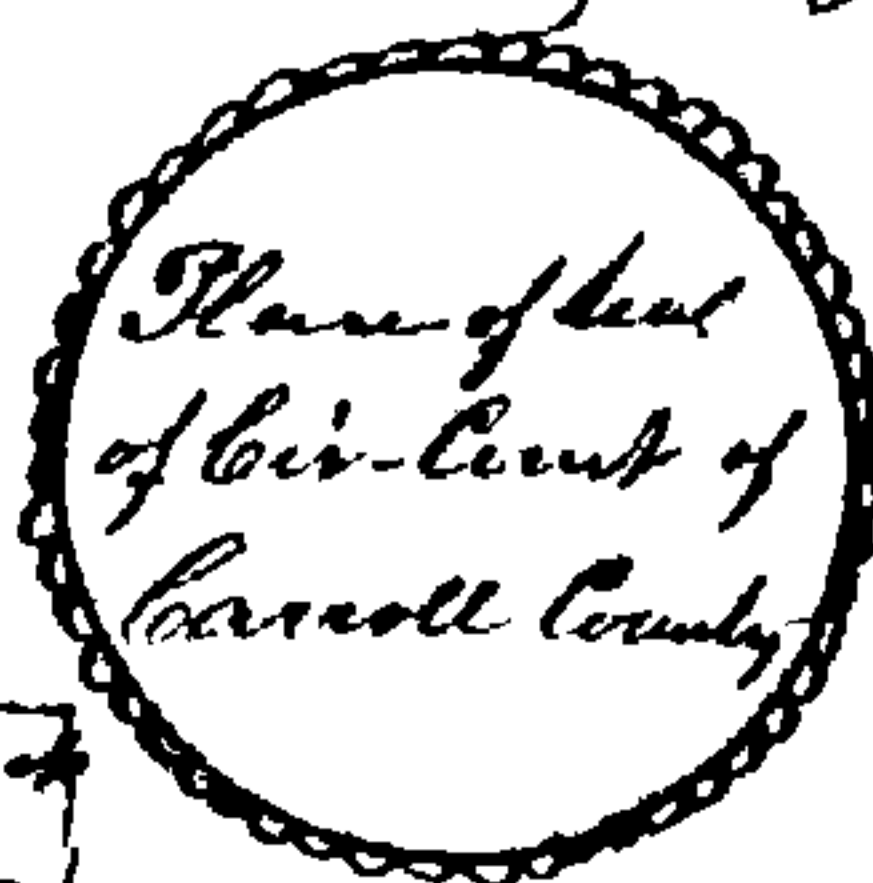 Place of Seal
of Cir-Court of
Carroll County